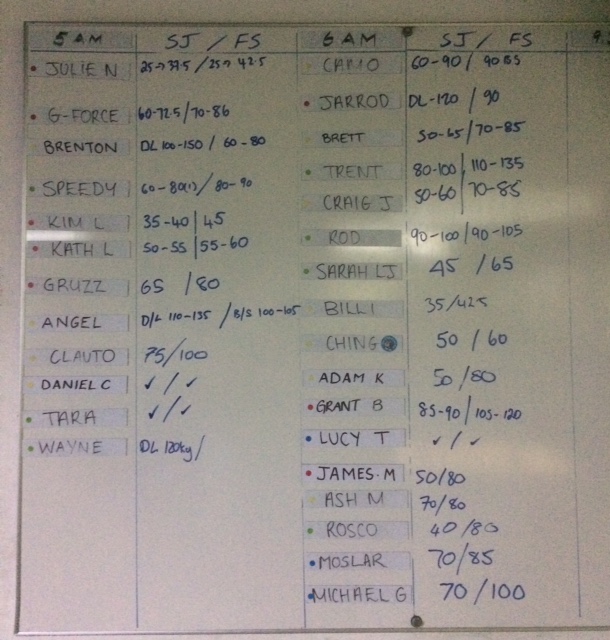 5 AM SJ / FS
JULIE N 25→37.5 / 25→ 42.5
G-FORCE 60-72.5/70-86
BRENTON DL 100-150 / 60-80
SPEEDY 60-80(1)/ 80-90
KIM L 35-40 | 45
KATH L 50-55 | 55-60
GRUZZ 65 / 80
ANGEL D/L 110-135 / B/S 100-105
CLAUTO 75/100
DANIEL C ✓ / ✓
TARA ✓ / ✓
WAYNE DL 120kg /
6 AM SJ / FS
CAMO 60-90 / 90 BS
JARROD DL-120 / 90
BRETT 50-65/70-85
TRENT 80-100 | 110-135
CRAIG J 50-60 | 70-85
ROD 90-100 | 90-105
SARAH LJ 45 / 65
BILLI 35/425
CHING 50 / 60
ADAM K 50/80
GRANT B 85-90 | 105-120
LUCY T ✓ / ✓
JAMES.M 50/80
ASH M 70/80
ROSCO 40/80
MOSLAR 70/85
MICHAEL G 70 / 100